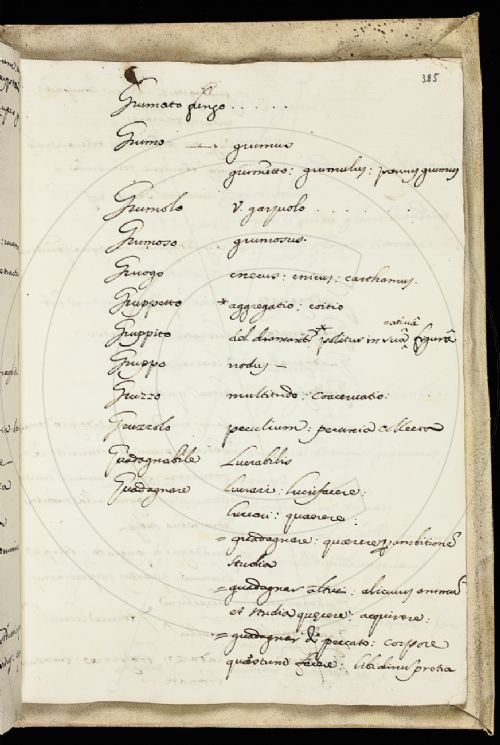 385
Grumato
Grumo grumus
grumetto: grumulus: parvus grumus
Grumolo v. garzuolo
Grumoso grumosus.
Gruogo cnecus: cnicus: carthamus.
Gruppetto * aggregatio: coitio
Gruppito del diamante * politus in suā nativā figurā
Gruppo nodus
Gruzzo multitudo: coacervatio:
Gruzzolo peculium: pecunia collecta
Guadagnabile Lucrabilis
Guadagnare Lucrari: lucrifacere:
lucrari: quaerere:
= guadagnare: quaerere ambitione
studia
= guadagnar altri: alicuius animū
et studia quaerere: acquirere:
= guadagnar di peccato: corpore
quaestum facere: libidinis pretia